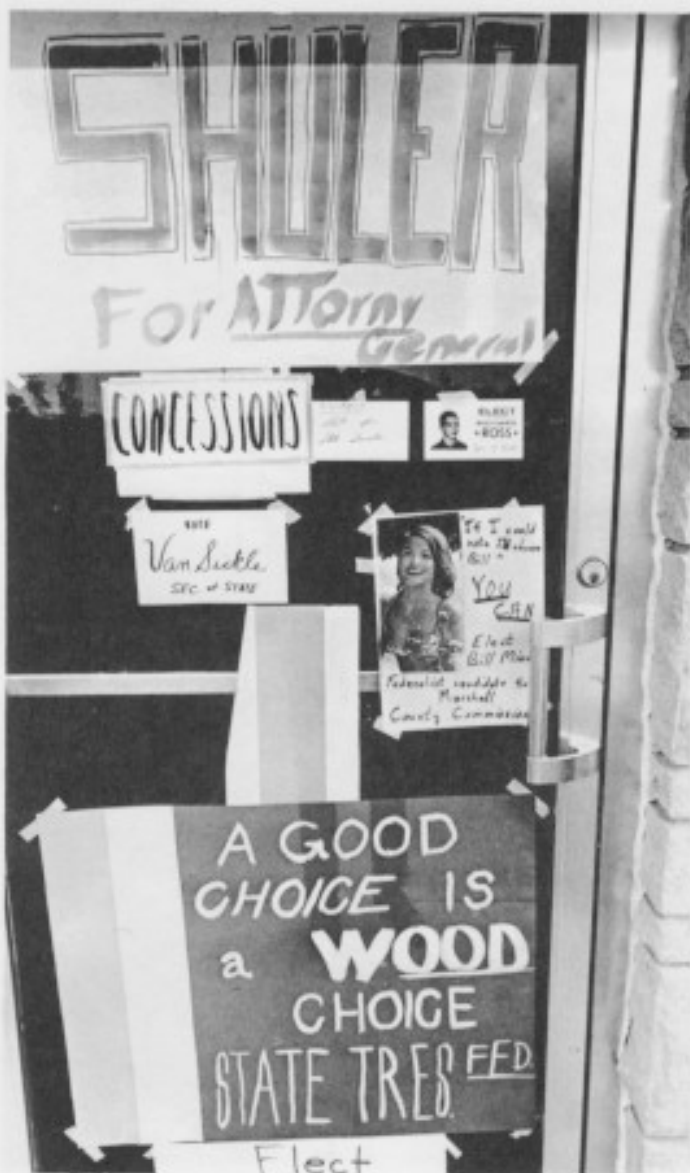 SHULER
For ATTorny
General
CONCESSIONS
ELECT
ROSS
VOTE
Van Sickle
SEC of STATE
"If I could
vote I'd choose
Bill"
YOU
CAN
Elect
Bill
Federalist candidate for
Marshall
County Commission
A GOOD
CHOICE IS
a WOOD
CHOICE
STATE TRES. FED.
Elect